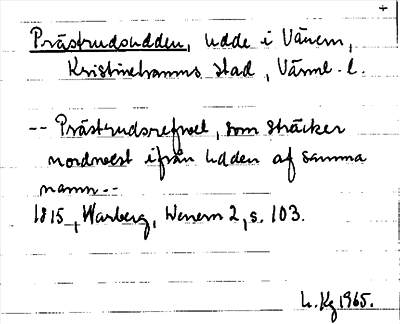 Prästrudsudden, udde i Vänern,
Kristinehamns stad, Värml. l.
-- Prästrudsrefwel, som sträcker
nordwest ifrån udden af samma
namn--
1815, Warberg, Wenern 2, s. 103.
L. Kg 1965.